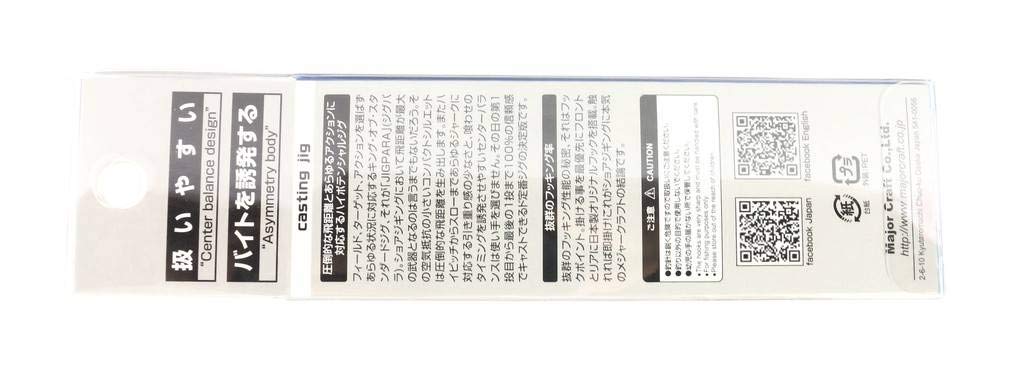 扱いやすい
"Center balance design"
バイトを誘発する
"Asymmetry body"
casting jig
圧倒的な飛距離とあらゆるアクションに
対応するハイポテンシャルジグ
フィールド、ターゲット、アクションを選ばず
あらゆる状況に対応するキング・オブ・スタ
ンダードジグ、それが「JIGPARA」(ジグパ
ラ)。ショアジギングにおいて飛距離が最大
の武器となるのは言うまでもないだろう。そ
の空気抵抗の小さいコンパクトシルエット
は圧倒的な飛距離を生み出します。またハ
イピッチからスローまであらゆるジャークに
対応する引き重り感の少なさと、喰わせの
タイミングを誘発させやすいセンターバラ
ンスは使い手を選びません。その日の第1
投目から最後の1投まで100%の信頼感
でキャストできるド定番ジグの決定版です。
抜群のフッキング率
抜群のフッキング性能の秘密、それはフッ
クポイント。掛ける事を最優先にフロント
とリアに日本製オリジナルフックを搭載。触
れれば即掛け!これがショアジギング!に本気
のメジャークラフトの結論です。
ご注意 CAUTION
●釣針は鋭く危険ですので取扱いにご注意ください。
●釣り以外の目的で使用しないでください。
●幼児の手の届かない所で保管してください。
●The hooks are very sharp and must be handled with care.
●For fishing purposes only.
●Please store out of the reach of children.
facebook Japan
facebook English
紙
台紙
プラ
外袋:PET
Major Craft Co.,Ltd.
http://www.majorcraft.co.jp
2-6-10 Kyutaromachi Chuo-ku Osaka Japan 541-0056